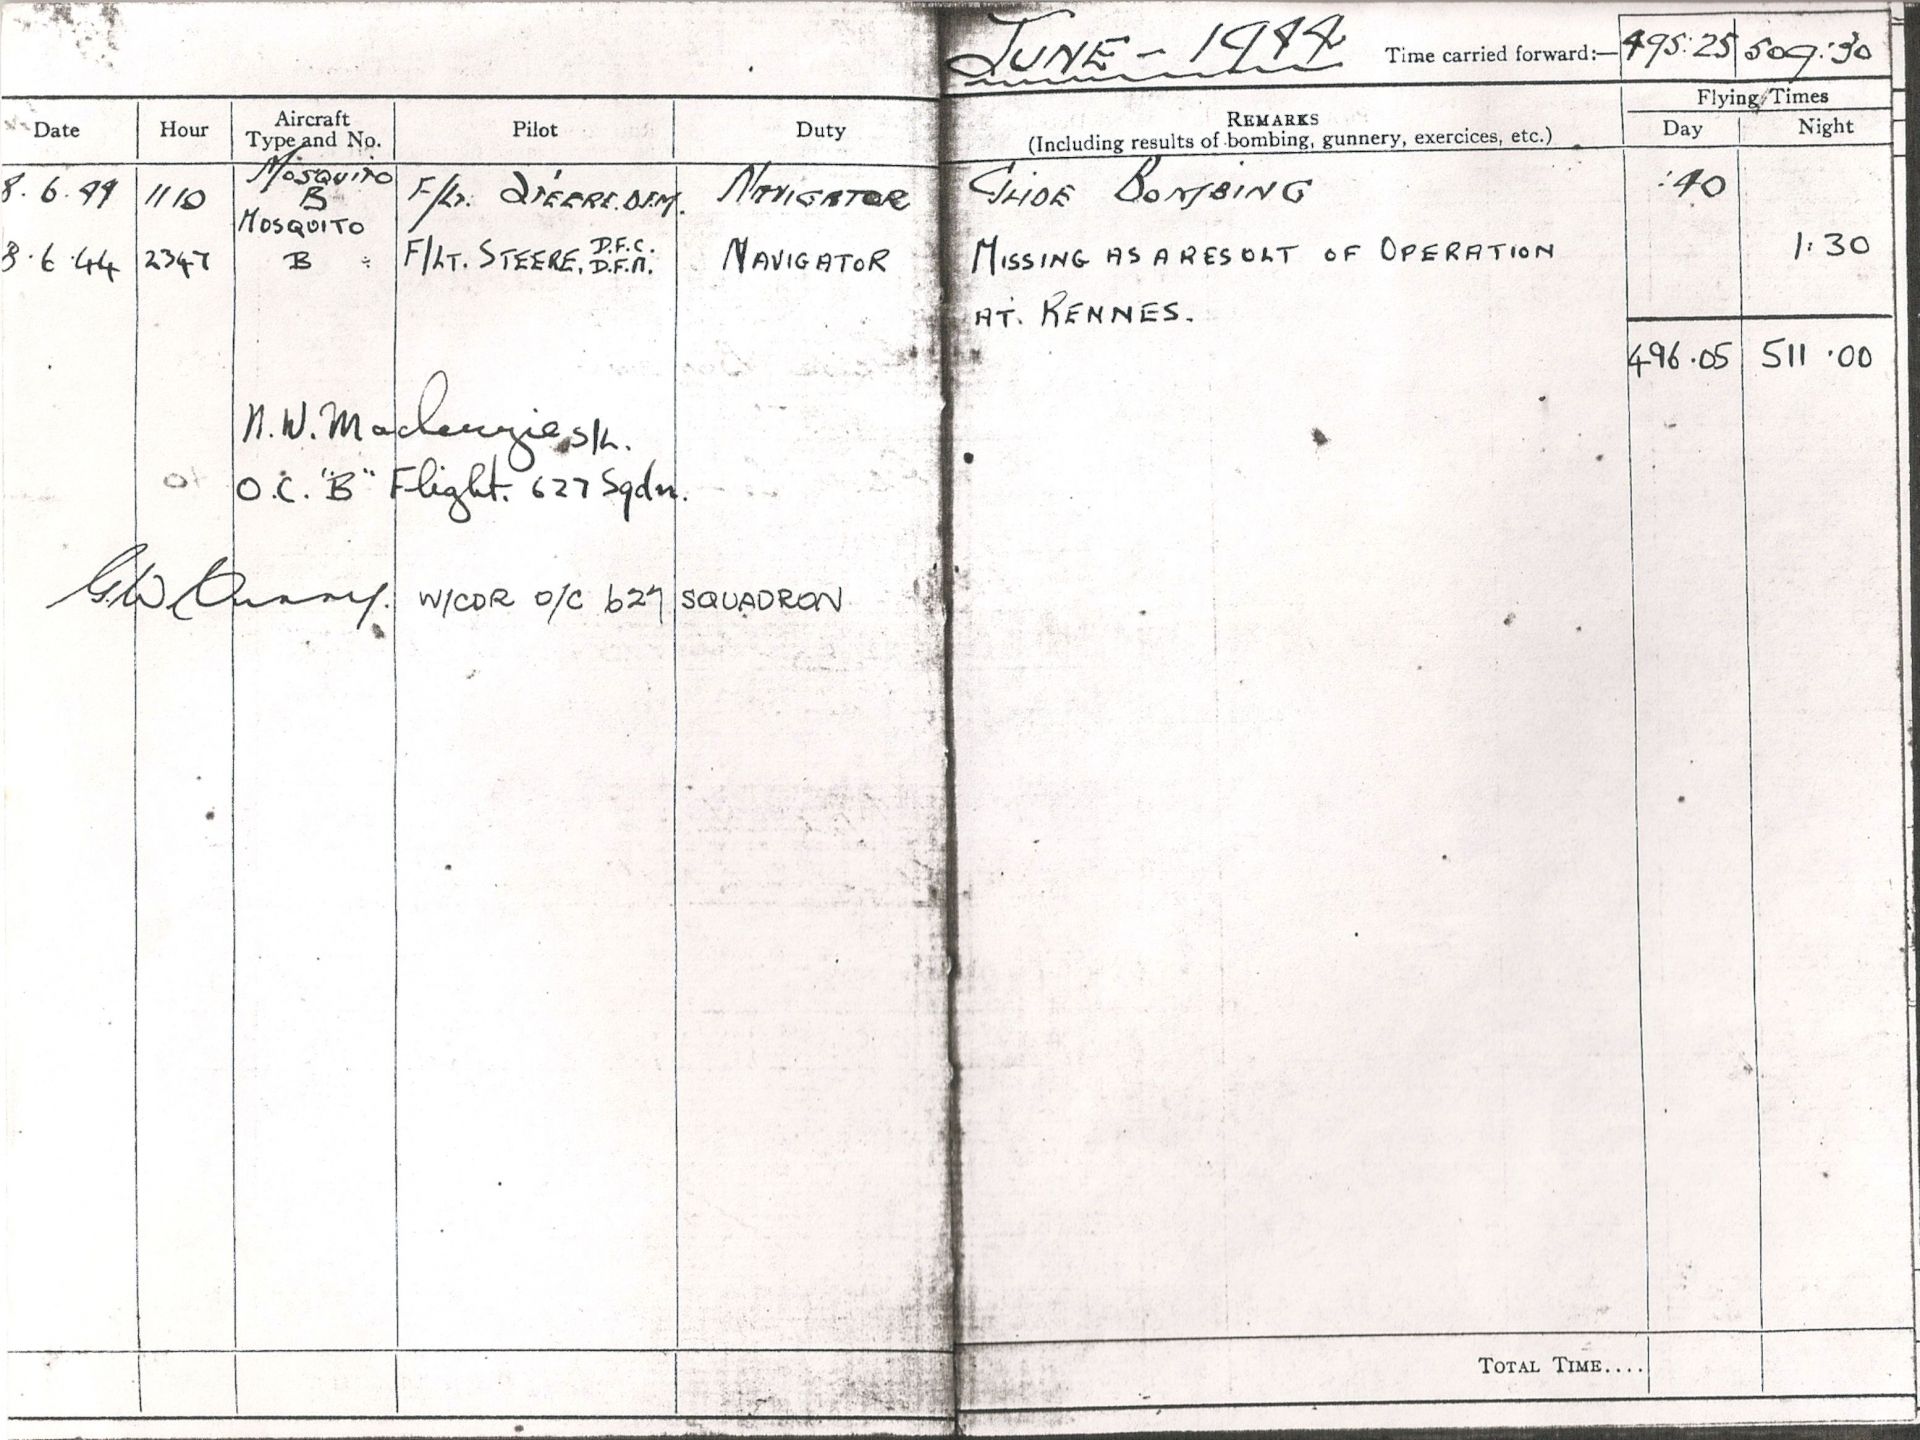 JUNE - 1944 Time carried forward:— 495:25 509:30
Flying Times
Date Hour Aircraft Type and No. Pilot Duty REMARKS (Including results of bombing, gunnery, exercices, etc.) Day Night
8.6.44 1110 MOSQUITO B F/LT. STEERE. D.F.M. NAVIGATOR GLIDE BOMBING :40
8.6.44 2347 MOSQUITO B F/LT. STEERE, D.F.C. D.F.M. NAVIGATOR MISSING AS A RESULT OF OPERATION 1:30
AT. RENNES.
496.05 511.00
N.W. Mackenzie S/L.
O.C. "B" Flight. 627 Sqdn.
G.W. Curry. W/CDR O/C 627 SQUADRON
TOTAL TIME....